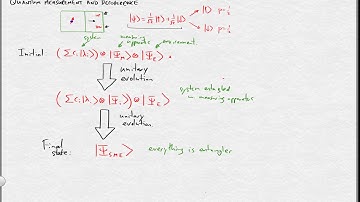 QUANTUM MEASUREMENT AND DECOHERENCE
|ψ⟩ = 1/√2 |↑⟩ + 1/√2 |↓⟩
|↑⟩ p=1/2
|↓⟩ p=1/2
system
measuring apparatus
environment
Initial (Σcᵢ|λᵢ⟩) ⊗ |Ψₘ⟩ ⊗ |Ψ_E⟩
unitary
evolution
(Σcᵢ|λᵢ⟩ ⊗ |Ψᵢ⟩) ⊗ |Ψ_E⟩
system entangled
measuring apparatus
unitary
evolution
Final
state: |Ψ_SME⟩ everything is entangled